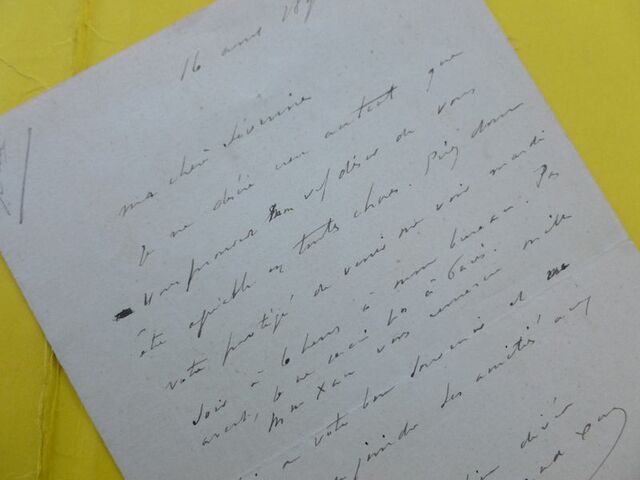 16 avril 189
ma chère Séverine
Je ne désire rien autant que
vous prouver mon vif désir de vous
être agréable en toutes choses. Priez donc
votre protégé de venir me voir mardi
soir à 6 heures à mon bureau. Pas
avant, je ne serai pas à Paris.
Mme Xau vous remercie mille
de votre bon souvenir et me
joindre ses amitiés aux
dévoué
Xau